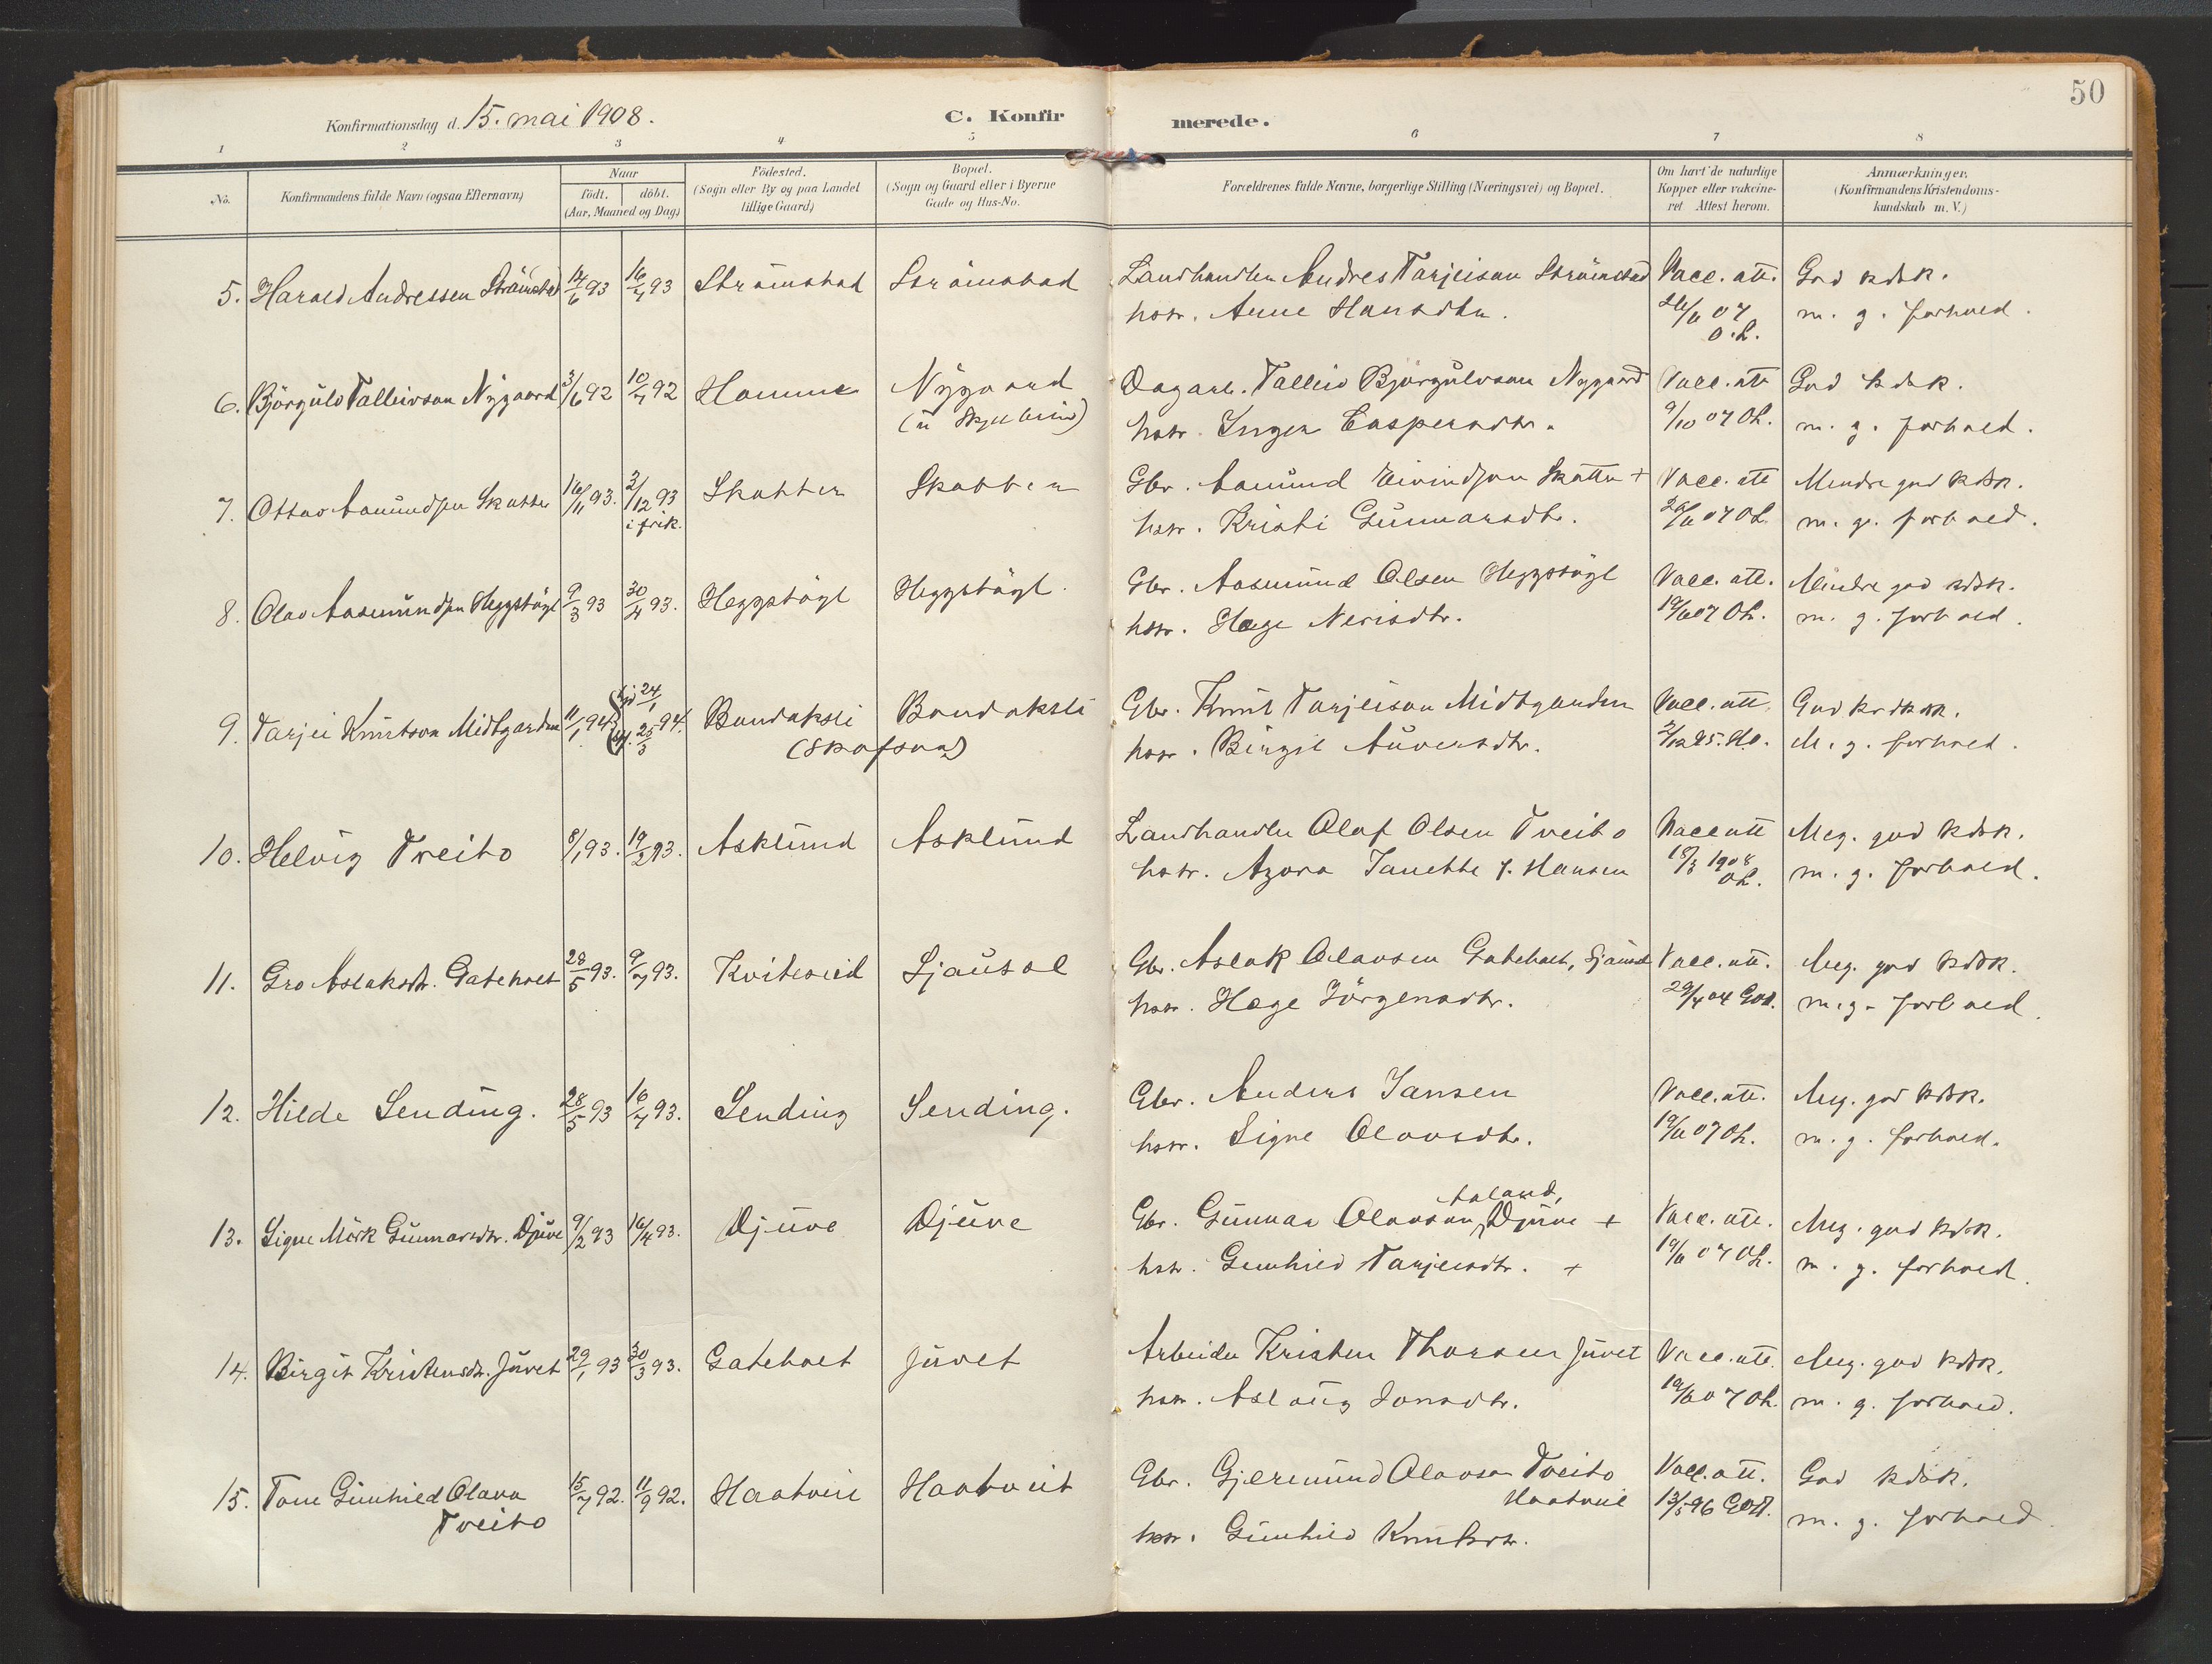 50
Konfirmationsdag d. 15. mai 1908.
C. Konfirmerede.
1 2 3 4 5 6 7 8
No.
Konfirmandens fulde Navn (ogsaa Efternavn)
Naar
født. døbt.
(Aar, Maaned og Dag)
Födested.
(Sogn eller By og paa Landet
tillige Gaard)
Bopæl.
(Sogn og Gaard eller i Byerne
Gade og Hus-No.
Forældrenes fulde Navne, borgerlige Stilling (Næringsvei) og Bopæl.
Om havt de naturlige
Kopper eller vakcine-
ret Attest herom.
Anmærkninger.
(Konfirmandens Kristendoms-
kundskab m. V.)
5. Harald Andressen Strømstad 14/6 93 16/7 93 Strømstad Strømstad Landhandler Andres Tarjeison Strømstad Vacc. att. God kdsk.
hstr. Anne Hansdtr. 26/11 07 m. g. forhold.
O.L.
6. Bjørgulv Talleivson Nygaard 3/6 92 10/7 92 Homme Nygaard Dagarb. Talleiv Bjørgulvson Nygaard Vacc. att God kdsk.
hstr. Inger Caspersdtr. 9/10 07 OL. m. g. forhold.
7. Ottar Aamundsen Skatter 16/11 93. 3/12 93 Skatter Skatter Gbr. Aamund Eivindsen Skatter + Vacc. att Mindre god kdsk.
i frik. hstr. Kristi Gunnarsdtr. 26/11 07 OL. m. g. forhold.
8. Olav Aasmundsen Heggstøyl 9/3 93 30/4 93. Heggstøyl Heggstøyl. Gbr. Aasmund Olsen Heggstøyl Vacc. att. Mindre god kdsk.
hstr. Hæge Nerisdtr. 19/11 07 OL. m. g. forhold.
9. Tarjei Knutson Midtgarden 11/1 94 24/1 25/3 94. Bandaksli Bandaksli Gbr. Knut Tarjeison Midtgarden Vacc. att. God kdsk.
(Skafsaa) hstr. Birgit Auversdtr. 2/12 95. M. g. forhold.
10. Helvig Treito 8/1 93. 19/2 93. Asklund Asklund Landhandler Olaf Olsen Tveito Vacc att Meg. god kdsk.
hstr. Azora Janette f. Hansen 18/3 1908 m. g. forhold.
OL.
11. Gro Aslaksdtr. Gateholt 28/5 93. 9/7 93. Kviteseid Sjausol Gbr. Aslak Olavsen Gateholt, Sjausol Vacc. att. Meg. god kdsk.
hstr. Hæge Jørgensdtr. 29/4 04 m. g. forhold.
12. Hilde Sending. 28/5 93 16/7 93. Sending Sending. Gbr. Anders Jansen Vacc. att. Meg. god kdsk.
hstr. Signe Olavsdtr. 19/11 07 OL. m. g. forhold.
13. Signe Mørk Gunnarsdtr. Djuve 9/2 93 16/4 93. Djuve Djuve Gbr. Gunnar Olavson Aaland, Djuve + Vacc. att. Meg. god kdsk.
hstr. Gunhild Tarjeisdtr. + 19/11 07 OL. m. g. forhold.
14. Birgit Kristensdtr. Juvet 29/1 93 30/3 93. Gateholt Juvet Arbeider Kristen Thorsen Juvet Vacc. att. Meg. god kdsk.
hstr. Aslaug Jonsdtr. 19/11 07 OL. m. g. forhold.
15. Tone Gunhild Olava 15/7 92. 11/9 92. Haatveit Haatveit Gbr. Gjermund Olavson Tveito Vacc. att. God kdsk.
Tveito Haatveit 13/5 96 m. g. forhold.
hstr. Gunhild Knutsdtr.